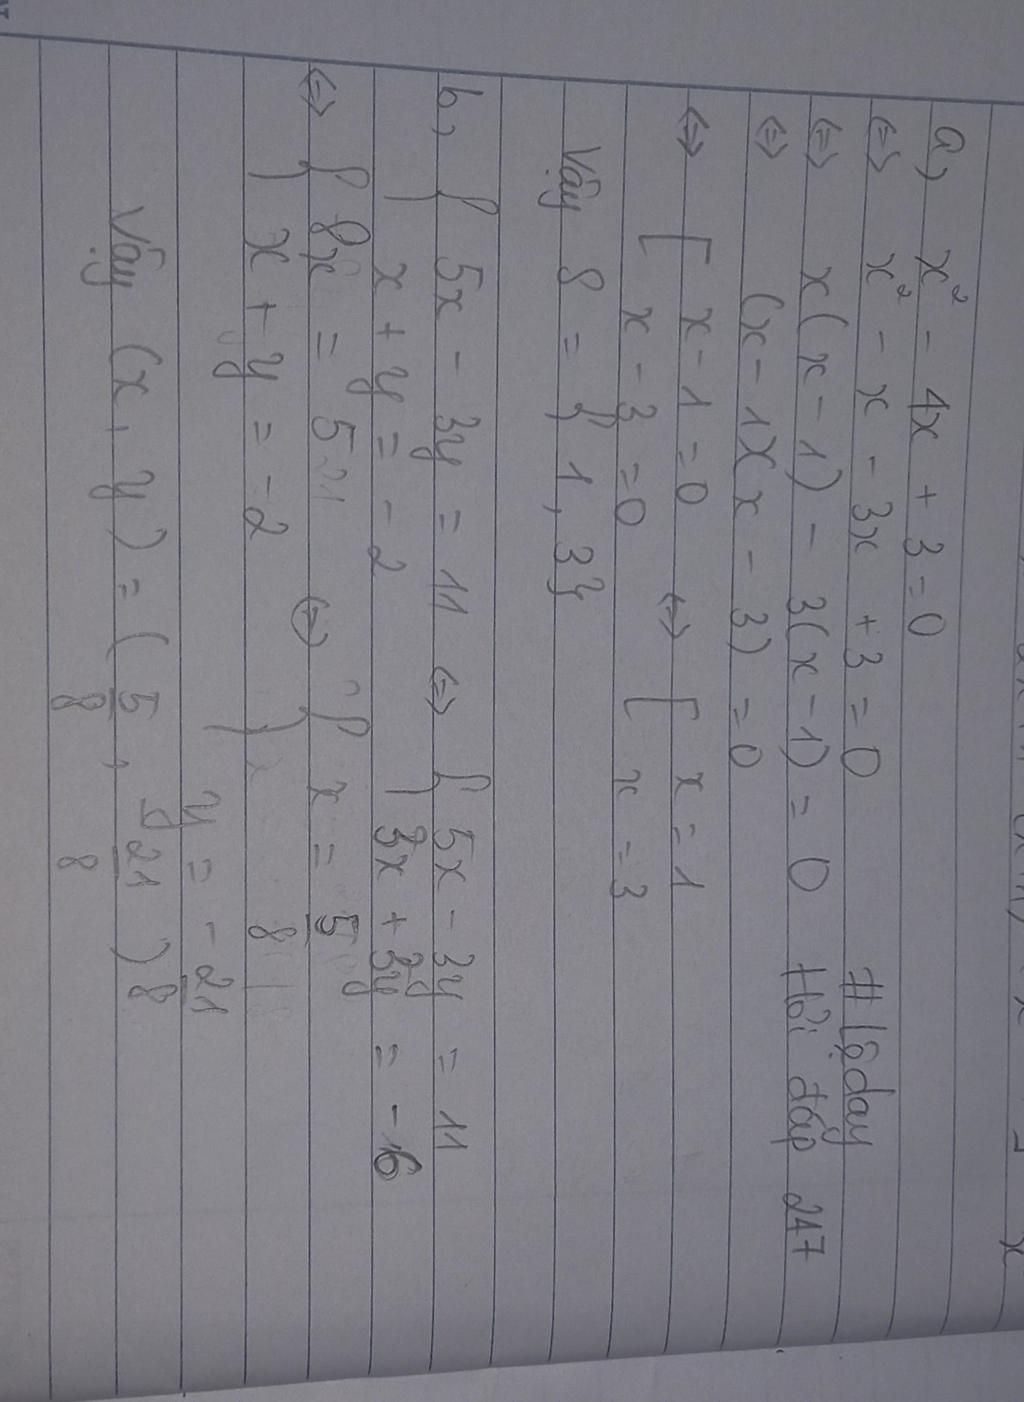 a, x² - 4x + 3 = 0
⇔ x² - x - 3x + 3 = 0 # lazday
⇔ x(x - 1) - 3(x - 1) = 0 Hỏi đáp 247
⇔ (x - 1)(x - 3) = 0
⇔ [ x - 1 = 0 ⇔ [ x = 1
x - 3 = 0 x = 3
Vậy S = { 1, 3}
b, { 5x - 3y = 11 ⇔ { 5x - 3y = 11
x + y = -2 3x + 3y = -16
⇔ { 8x = 5 ⇔ { x = 5/8
x + y = -2 y = -21/8
Vậy (x, y) = ( 5/8 , -21/8 )